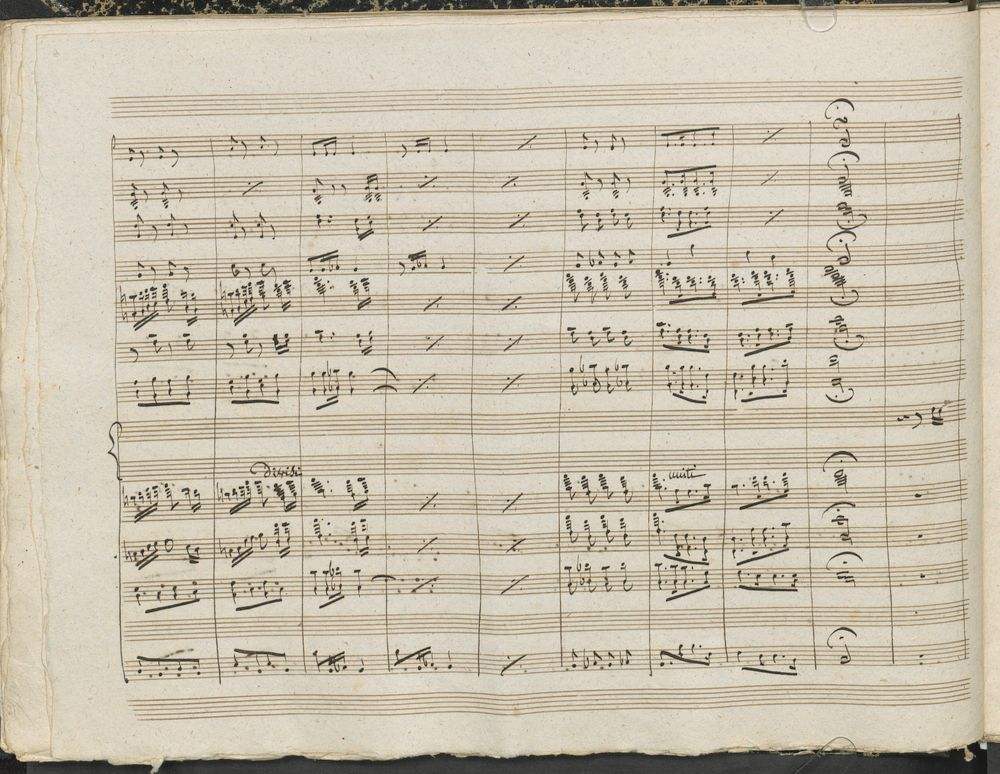 Divisi
uniti